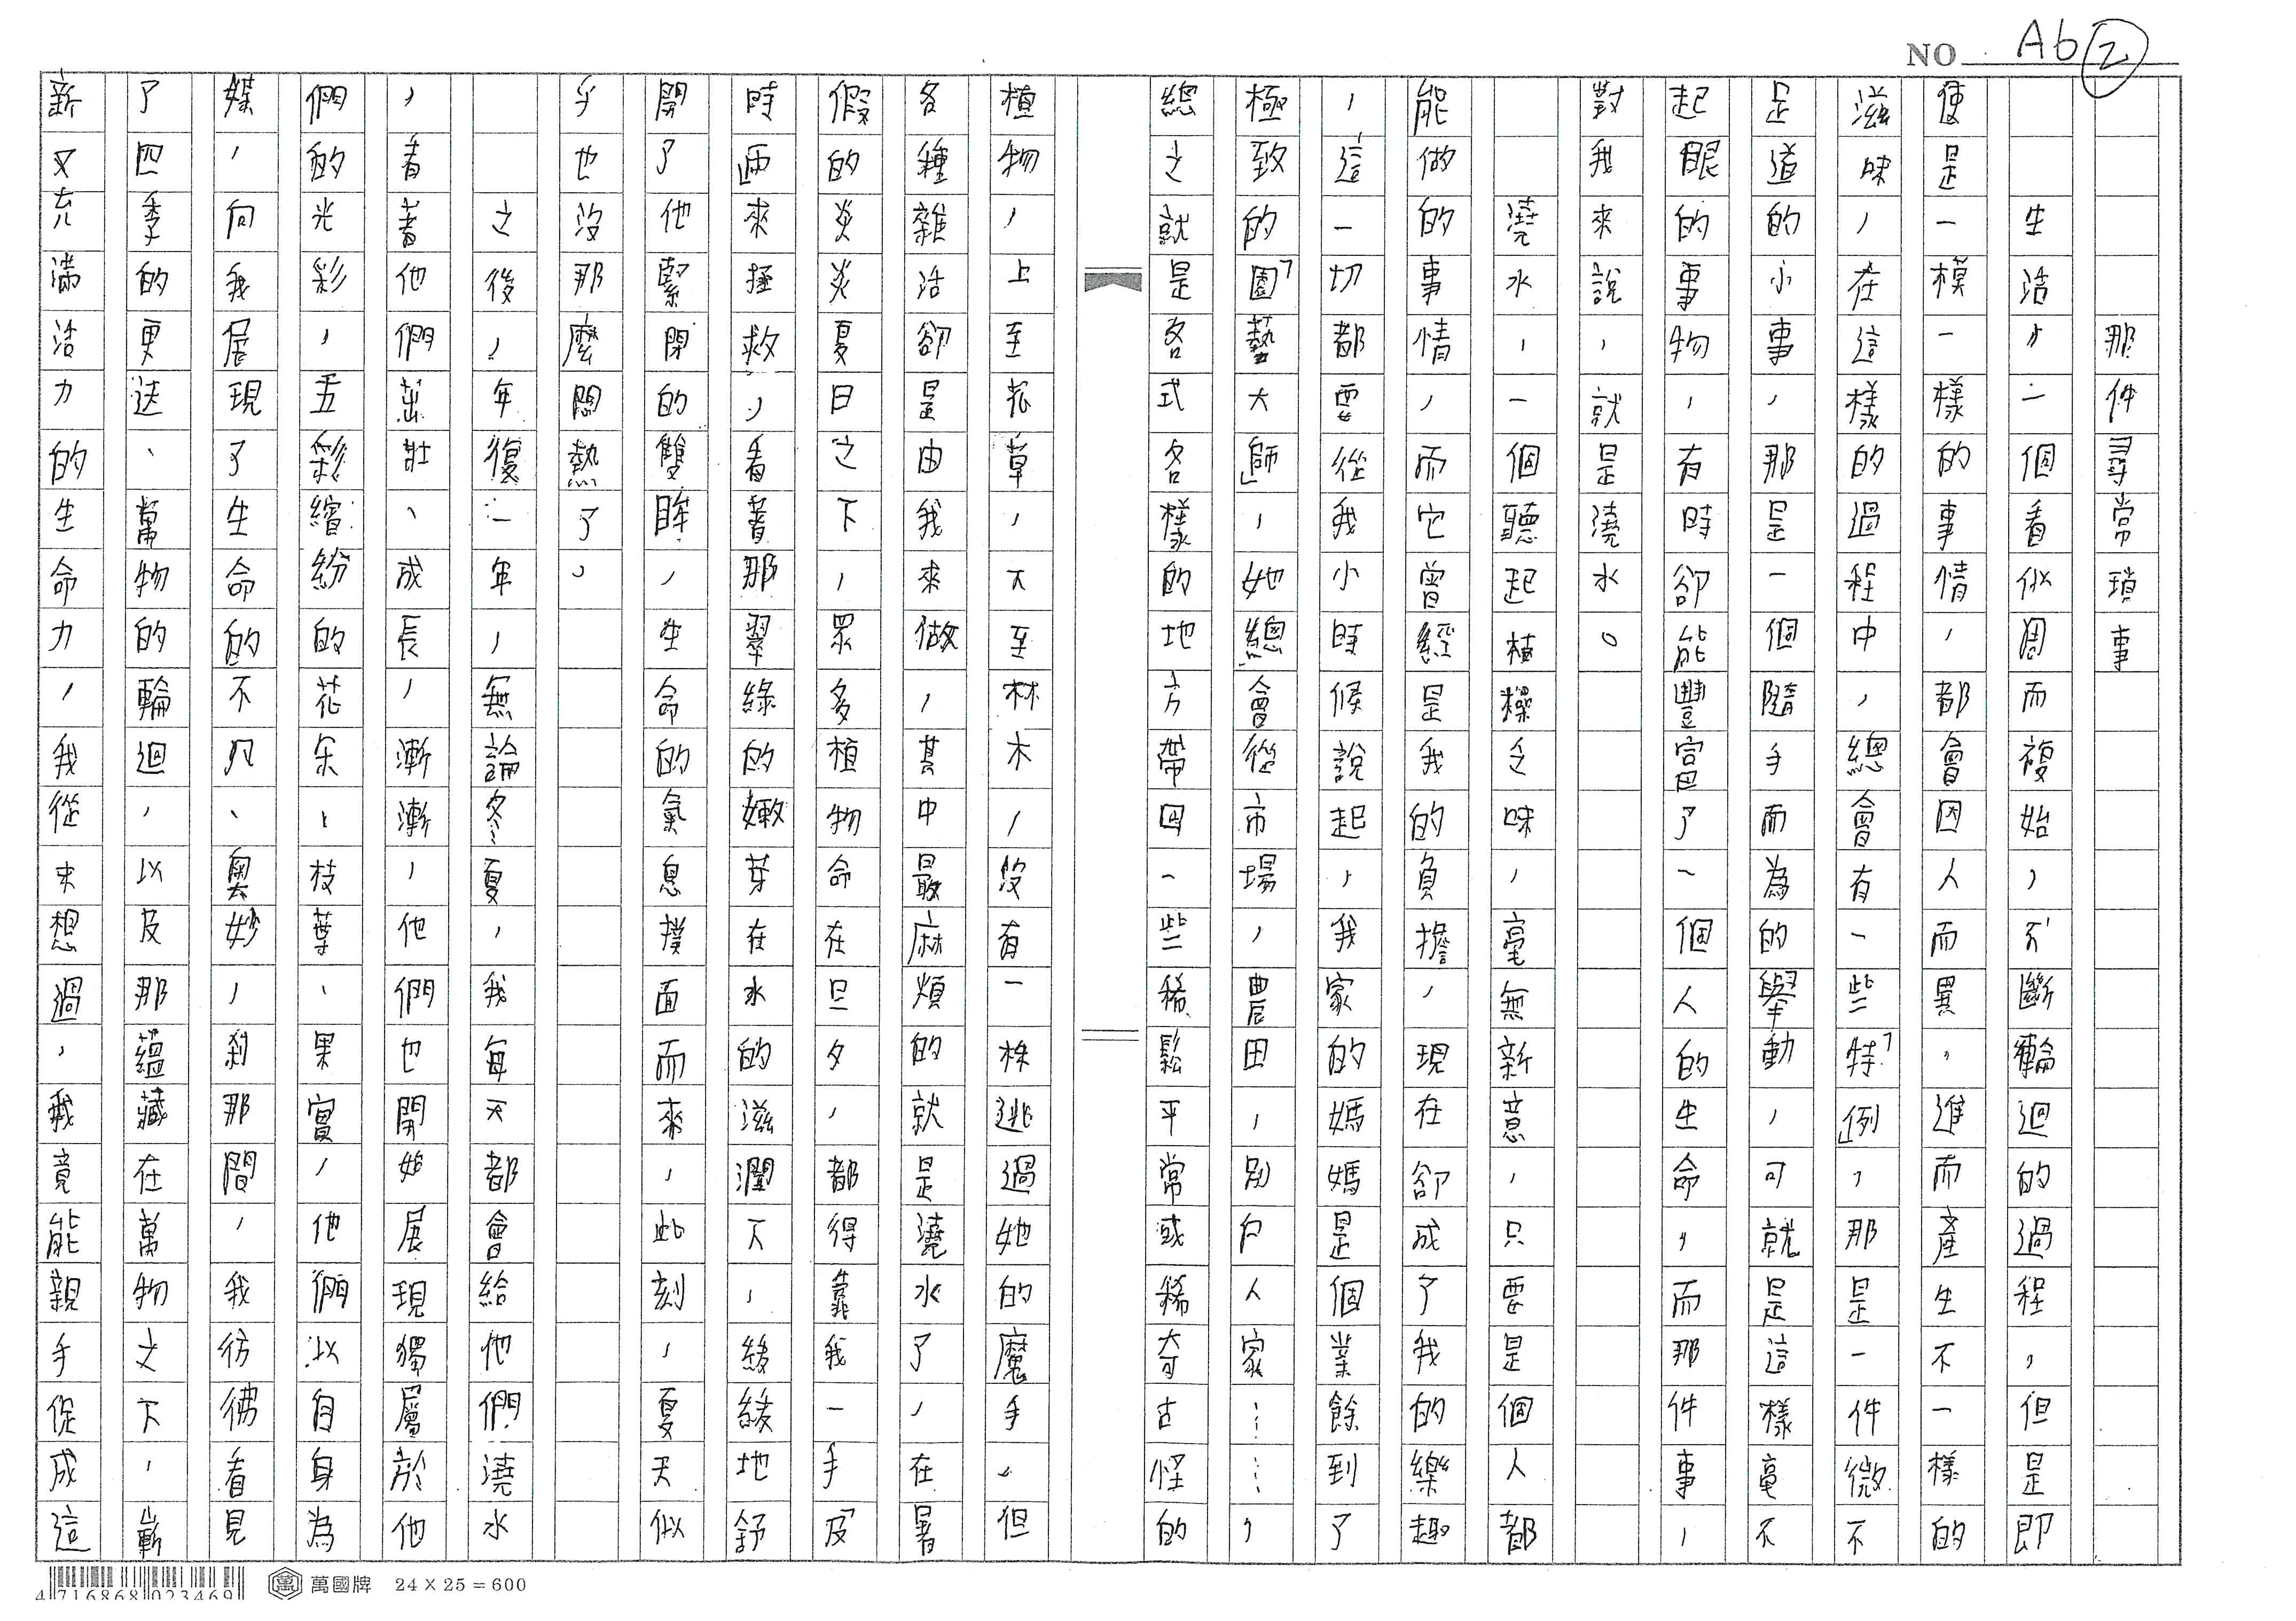 NO A6 ②
那件尋常瑣事
生活，一個看似周而複始，不斷輪迴的過程，但是即
使是一模一樣的事情，都會因人而異，進而產生不一樣的
滋味，在這樣的過程中，總會有一些「特例」，那是一件微不
是道的小事，那是一個隨手而為的舉動，可就是這樣毫不
起眼的事物，有時卻能豐富了一個人的生命，而那件事，
對我來說，就是澆水。
澆水，一個聽起枯燥乏味，毫無新意，只要是個人都
能做的事情，而它曾經是我的負擔，現在卻成了我的樂趣
，這一切都要從我小時候說起，我家的媽媽是個業餘到了
極致的「園藝大師」，她總會從市場，農田，別戶人家……，
總之就是各式各樣的地方帶回一些稀鬆平常或稀奇古怪的
植物，上至花草，下至林木，沒有一株逃過她的魔手。但
各種雜活卻是由我來做，其中最麻煩的就是澆水了，在暑
假的炎炎夏日之下，眾多植物命在旦夕，都得靠我一手及
時雨來拯救，看著那翠綠的嫩芽在水的滋潤下，緩緩地舒
開了他緊閉的雙眸，生命的氣息撲面而來，此刻，夏天似
乎也沒那麼悶熱了。
之後，年復一年，無論冬夏，我每天都會給他們澆水
，看著他們茁壯、成長，漸漸，他們也開始展現獨屬於他
們的光彩，五彩繽紛的花朵、枝葉、果實，他們以自身為
媒，向我展現了生命的不凡、奧妙，剎那間，我彷彿看見
了四季的更迭、萬物的輪迴，以及那蘊藏在萬物之下，嶄
新又充滿活力的生命力，我從未想過，我竟能親手促成這
4716868023469 萬國牌 24 X 25 = 600